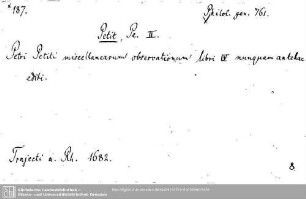 *187.
Philol. gen. 761.
Petit, Pe. II.
Petri Petiti miscellanearum observationum libri IV nunquam antehac
editi.
Trajecti a. Rh. 1682.
8